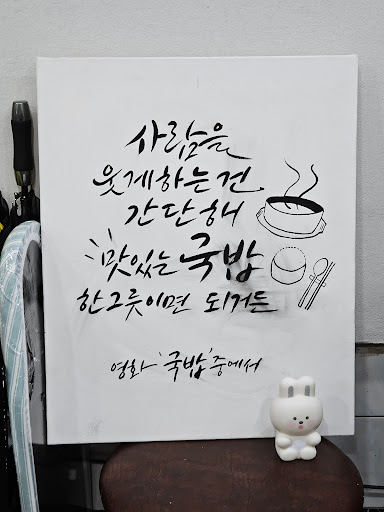 사람을
웃게하는건
간단해
맛있는 국밥
한그릇이면 되거든
영화 '국밥' 중에서